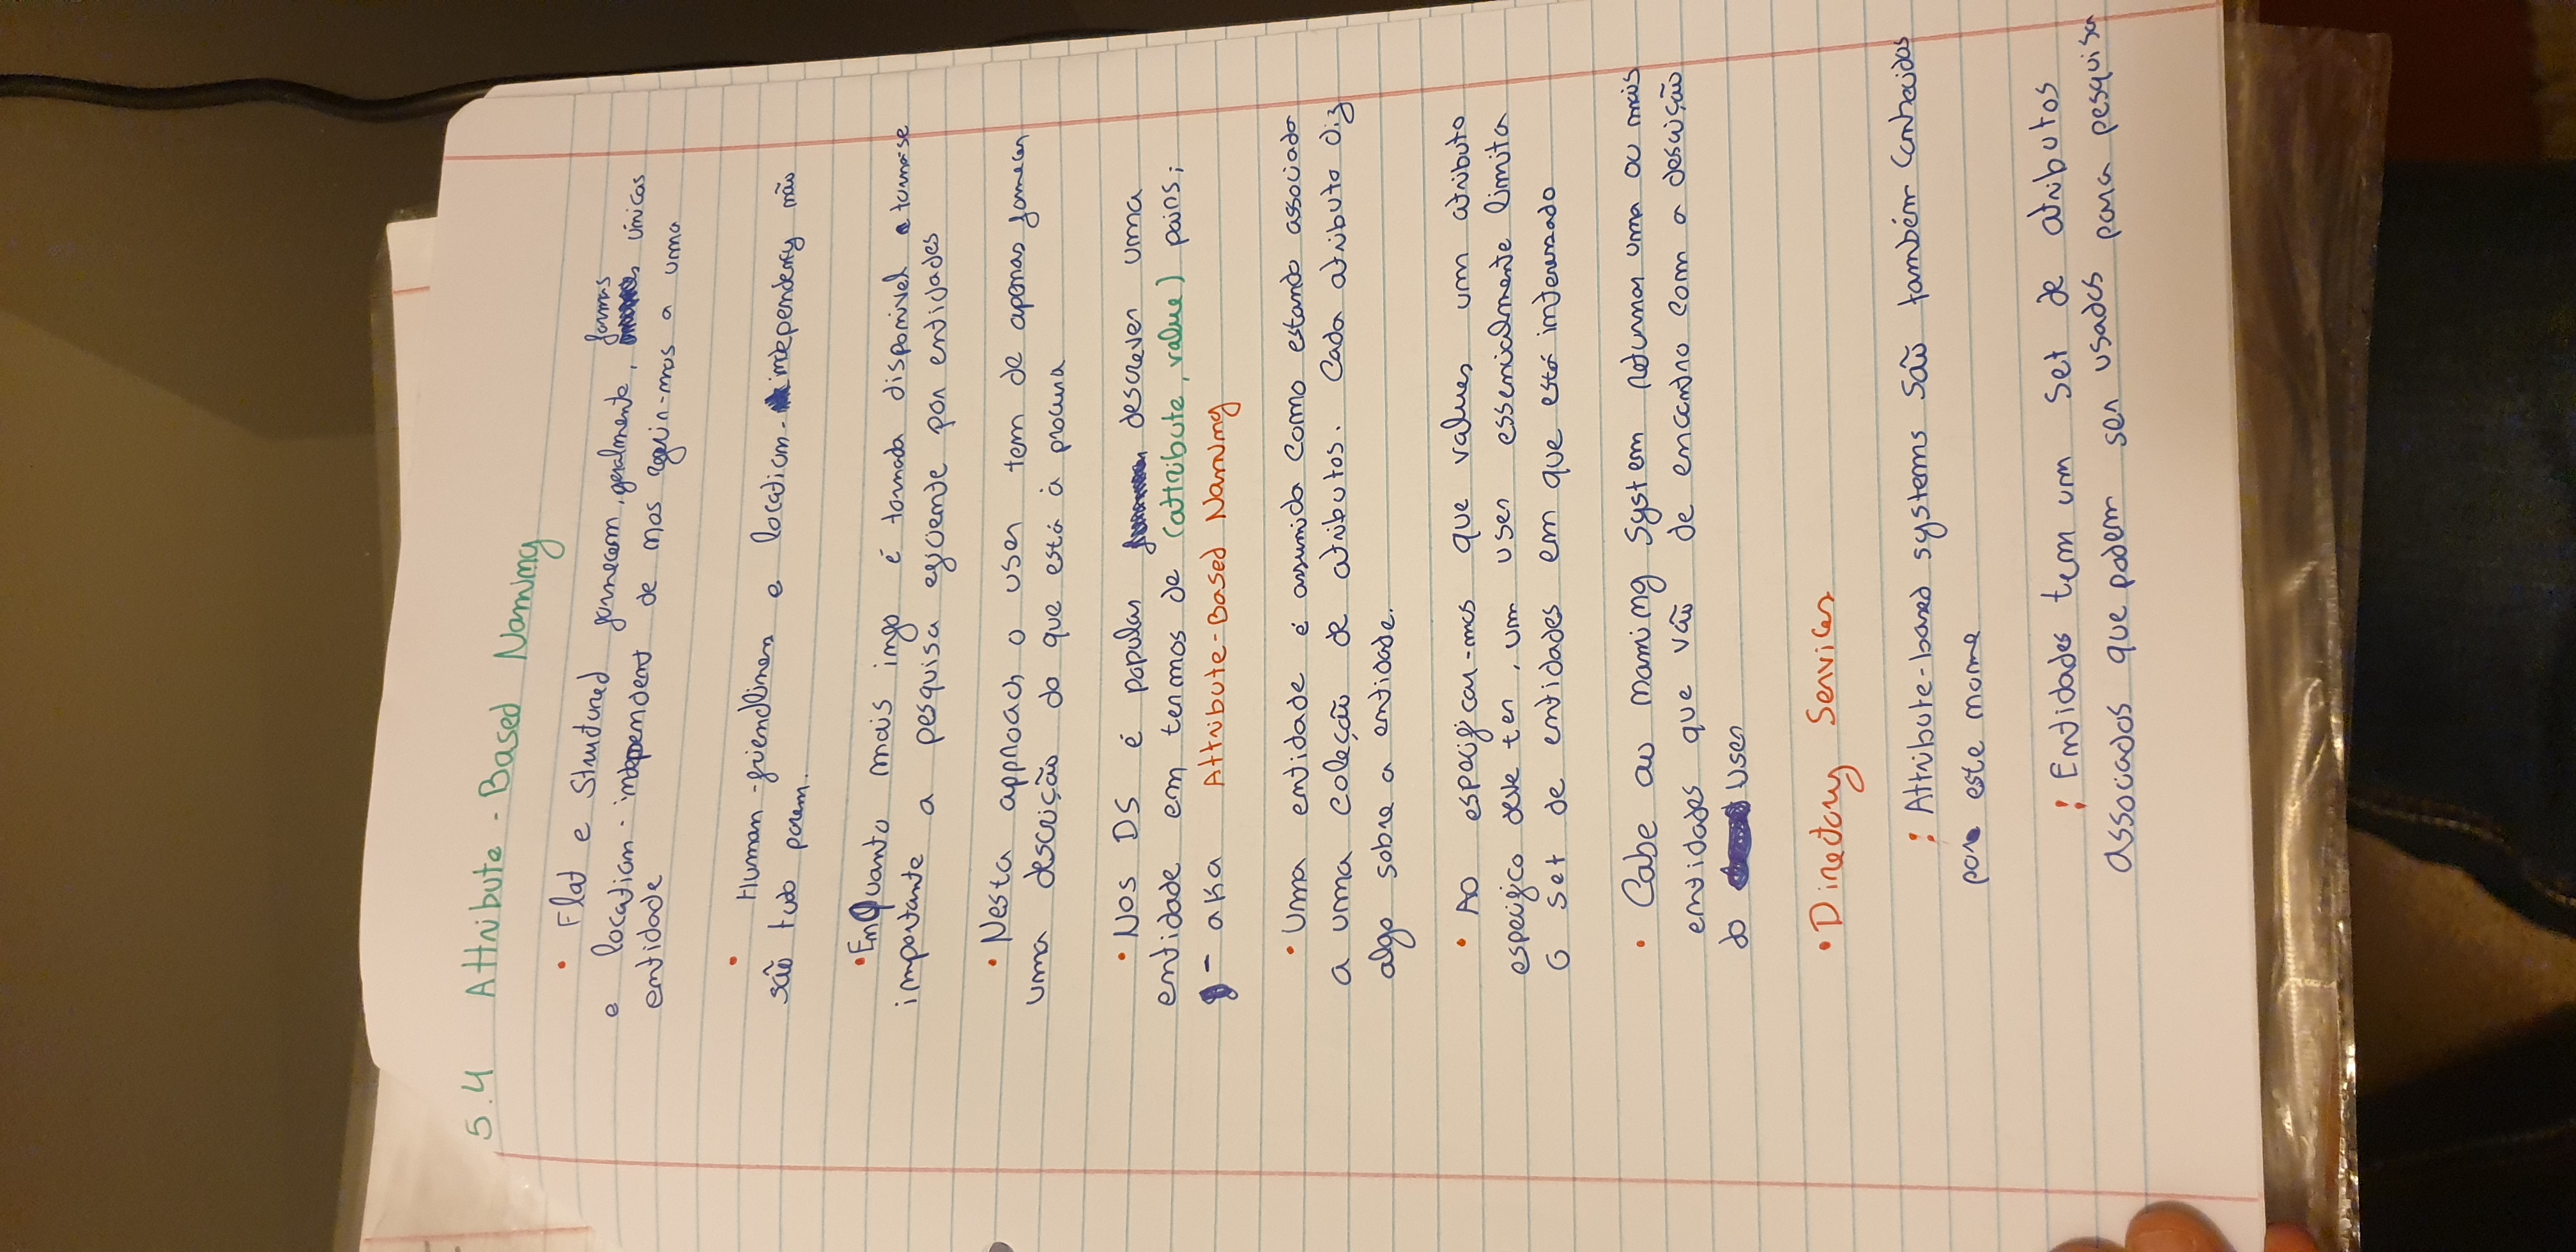 5.4 Attribute-Based Naming
• Flat e Structured fornecem, geralmente, formas únicas
e location-independent de nos referir-mos a uma
entidade
• Human-friendliness e location-independency não
são tudo porem.
• EnQuanto mais info é tornada disponivel torna-se
importante a pesquisa eficiente por entidades
• Nesta approach o user tem de apenas fornecer
uma descrição do que está à procura
• Nos DS é popular descrever uma
entidade em termos de (attribute, value) pairs;
- aka Attribute-Based Naming
• Uma entidade é assumida como estando associada
a uma coleção de atributos. Cada atributo diz
algo sobre a entidade.
• Ao especificar-mos que values um atributo
especifico deve ter, um user essencialmente limita
o set de entidades em que está interessado
• Cabe ao naming system returnar uma ou mais
entidades que vão de encontro com a descrição
do user
• Directory Services
: Attribute-based systems são também conhecidos
por este nome
: Entidades tem um set de atributos
associados que podem ser usados para pesquisa